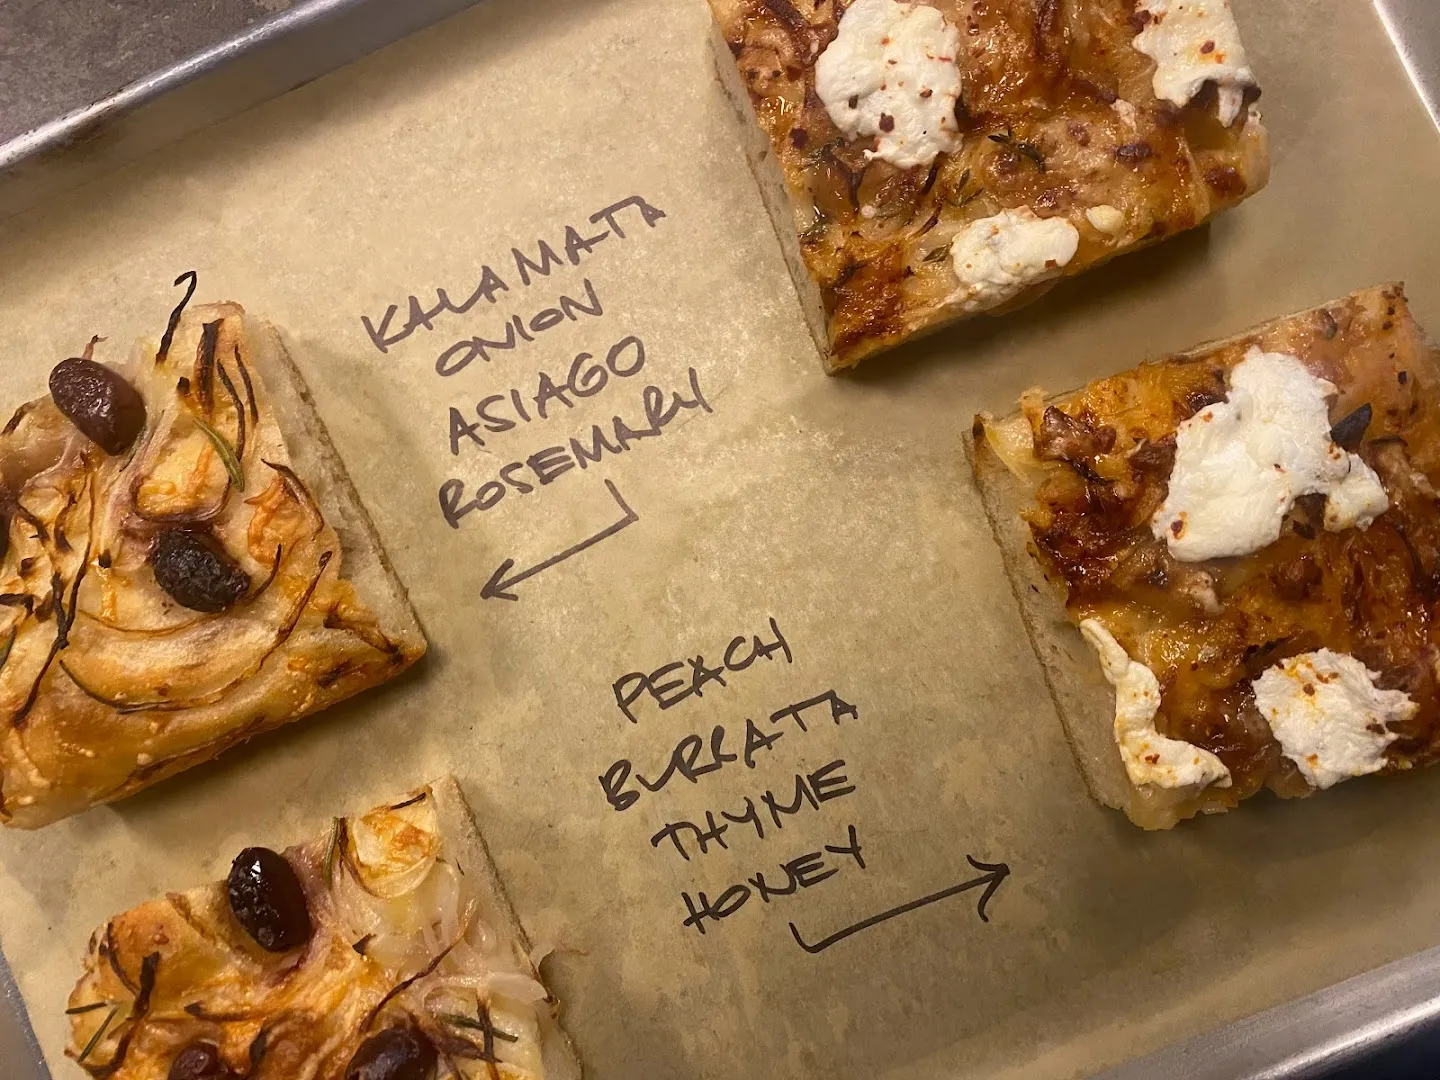 KALAMATA
ONION
ASIAGO
ROSEMARY
PEACH
BURRATA
THYME
HONEY